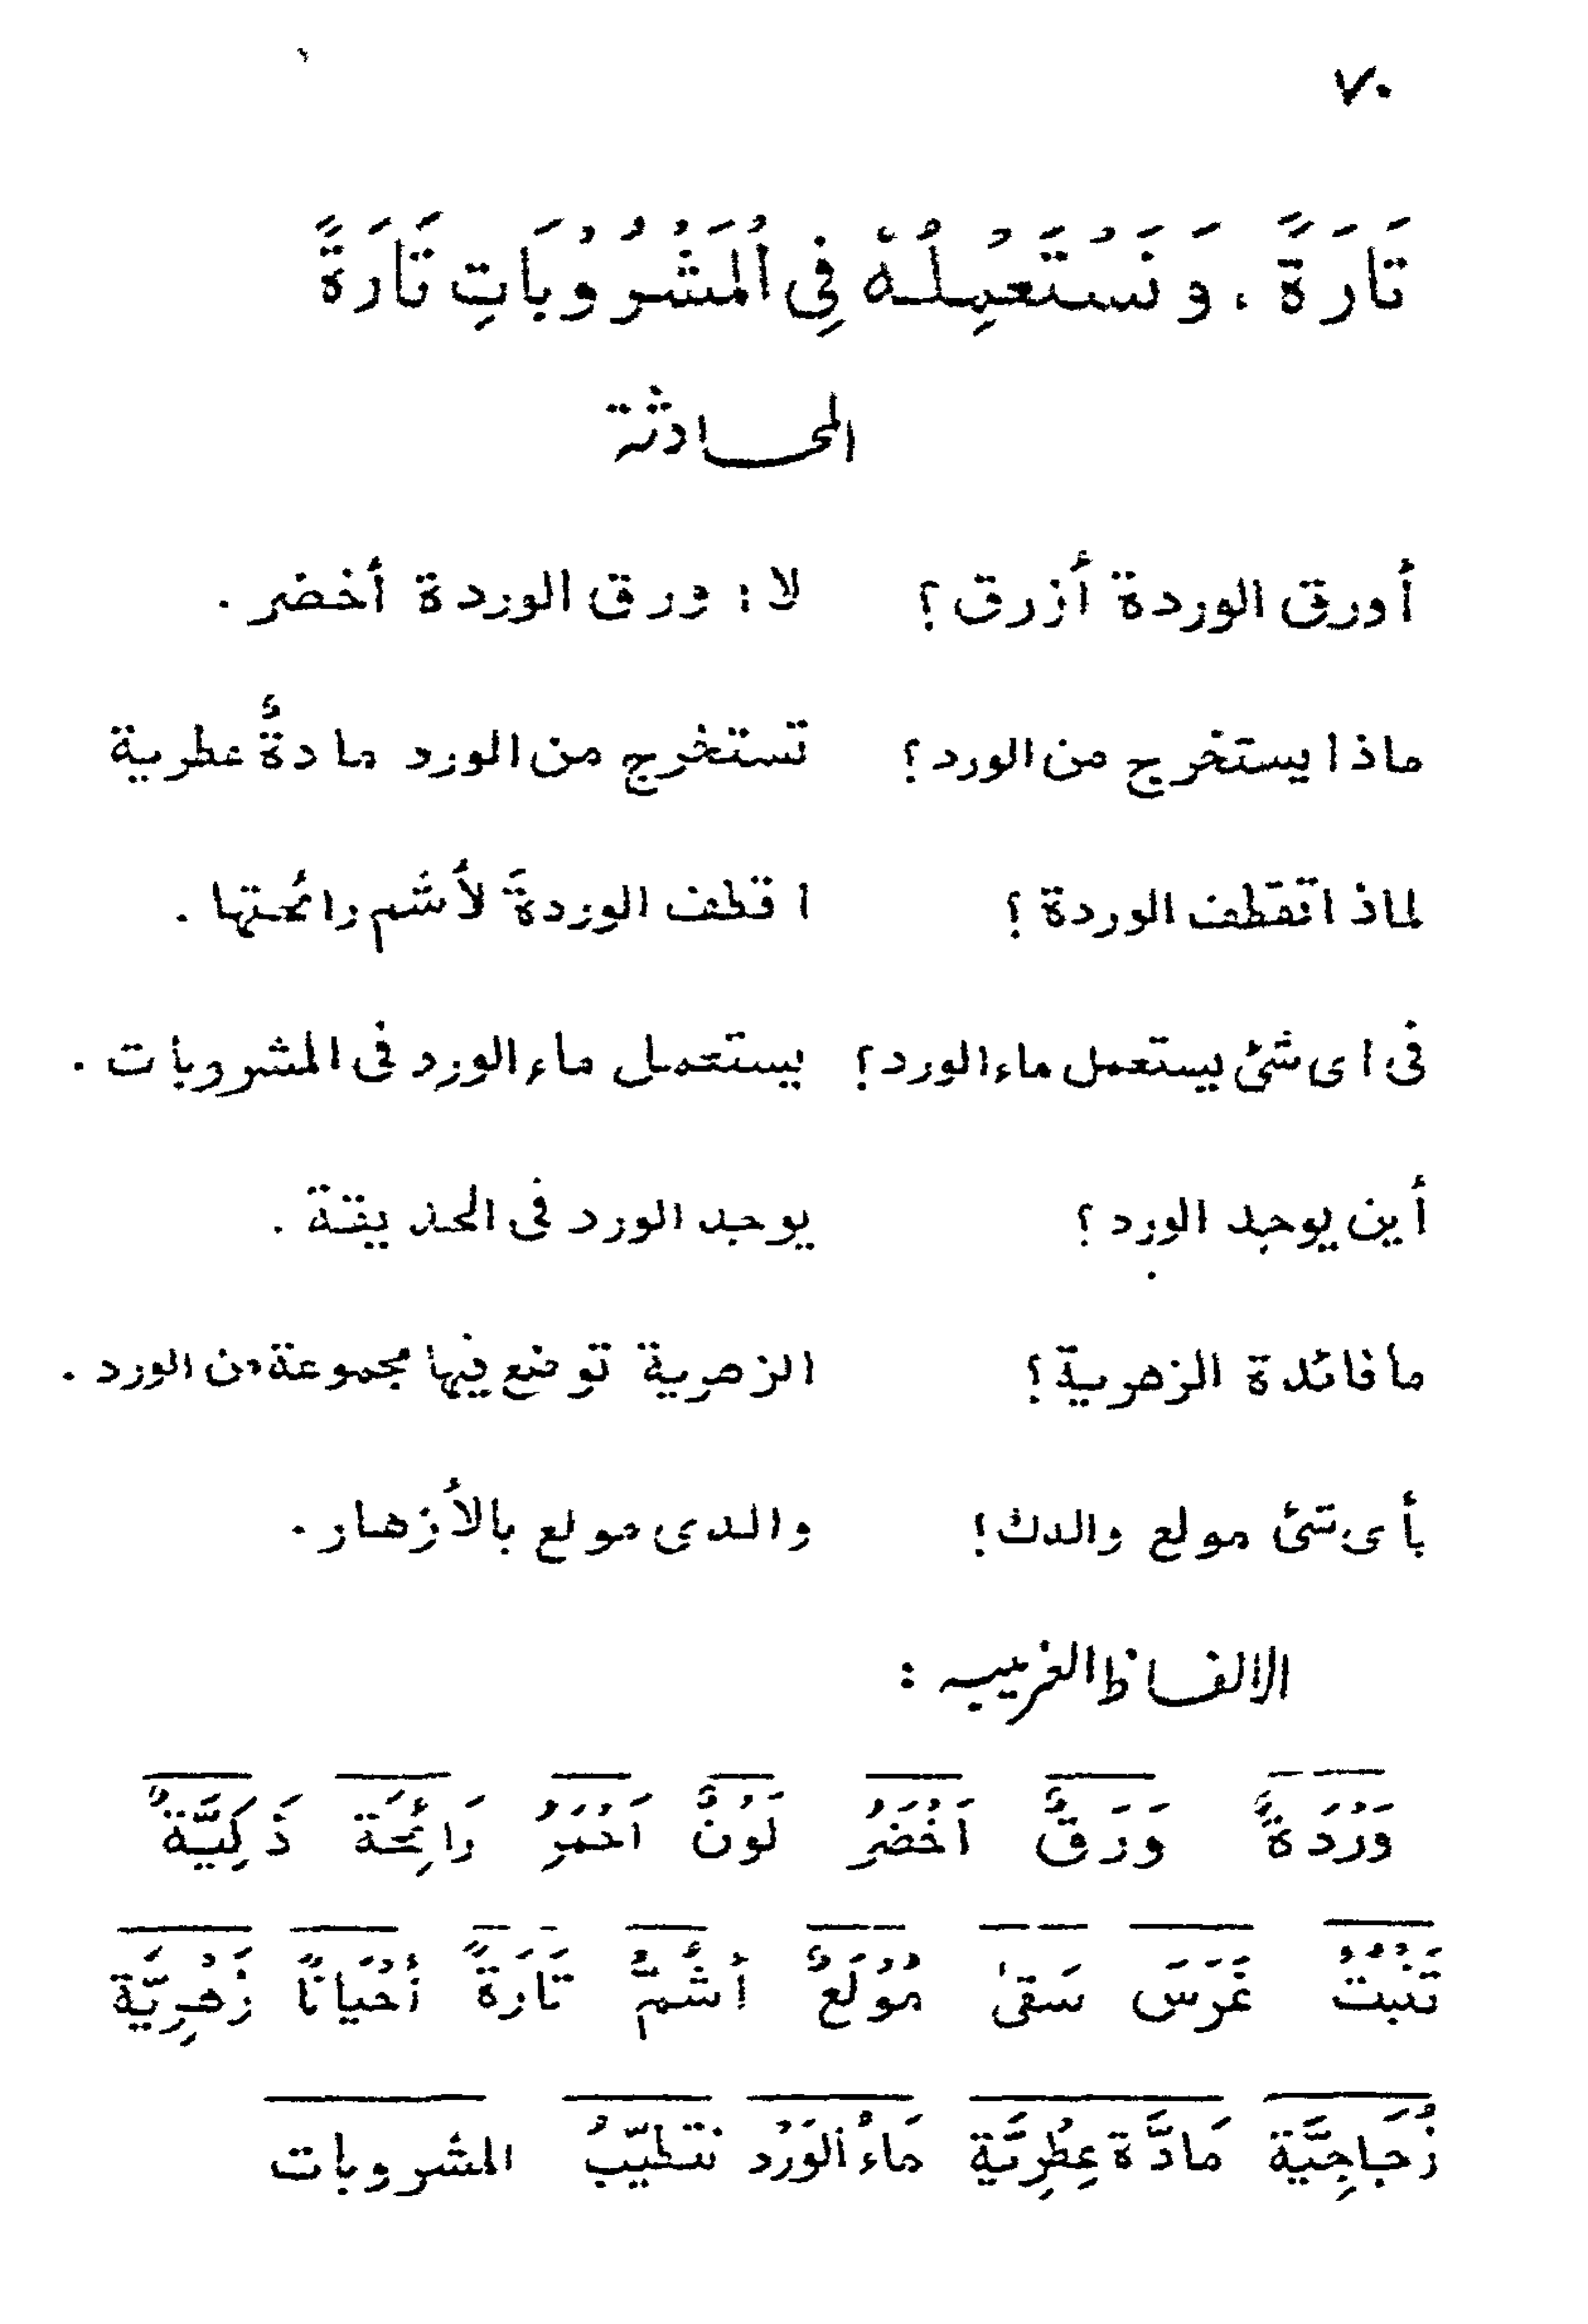 ٧٠
تَارَةً ، وَ نَسْتَعْمِلُهُ فِى الْمَشْرُوْبَاتِ تَارَةً
المحادثة
أورق الوردة أزرق؟ لا؛ ورق الوردة أخضر.
ماذا يستخرج من الورد؟ تستخرج من الورد مادةٌ عطرية
لماذا تقطف الوردة؟ اقطف الوردةَ لأشم رائحتها.
فى اى شئ يستعمل ماء الورد؟ يستعمل ماء الورد فى المشروبات.
أين يوجد الورد؟ يوجد الورد فى الحديقة.
ما فائدة الزهرية؟ الزهرية توضع فيها مجموعة من الورد.
بأى شئ مولع والدك؟ والدى مولع بالأزهار.
الالفاظ الغريبه :
وَرْدَةٌ وَرَقٌ اَخْضَرُ لَوْنٌ اَحْمَرُ رَائِحَة ذَكِيَّةٌ
تَنْبُتُ غَرَسَ سَقىٰ مُوْلَعٌ أشُمُّ تَارَةً أحْيَانًا زَهْرِيَّة
زُجَاجِيَّة مَادَّة عِطْرِيَّة مَاءُ الْوَرْد نتطيّبُ المشروبات